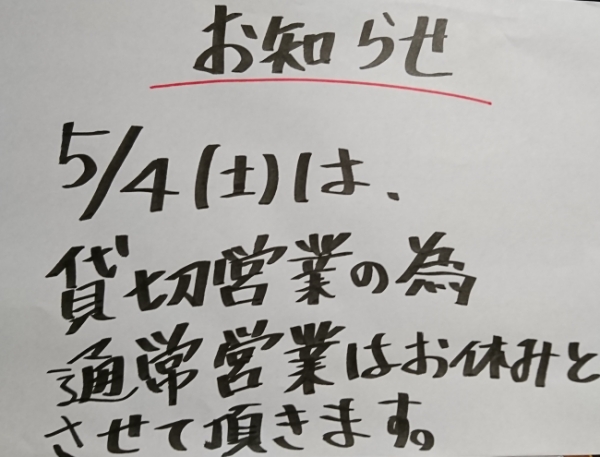 お知らせ
5/4(土)は、
貸切営業の為
通常営業はお休みと
させて頂きます。